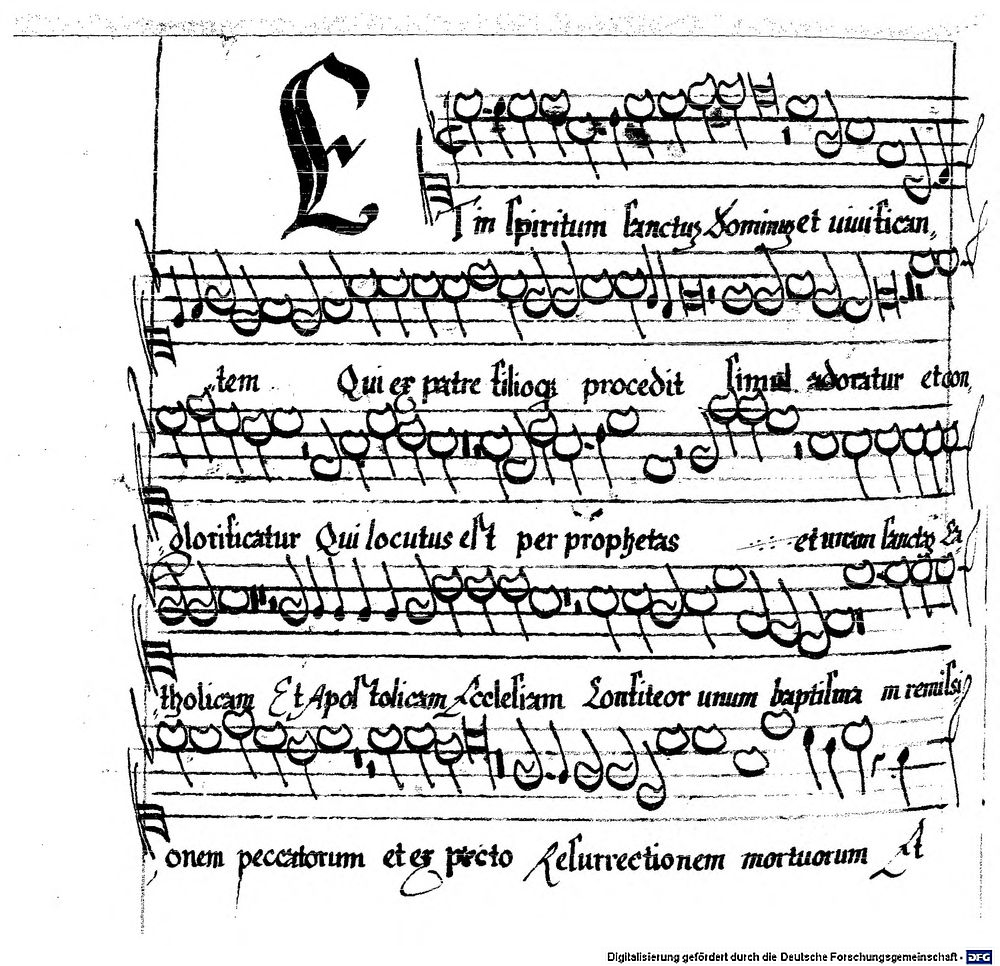 E
T in spiritum sanctus Dominus et uiuifican„
„tem Qui ex patre filioq; procedit simul adoratur et con„
glorificatur Qui locutus est per prophetas et unam sanctã Ca
tholicam Et Apostolicam Ecclesiam Confiteor unum baptisma in remissi
onem peccatorum et ex Resurrectionem mortuorum Et
Digitalisierung gefördert durch die Deutsche Forschungsgemeinschaft - DFG